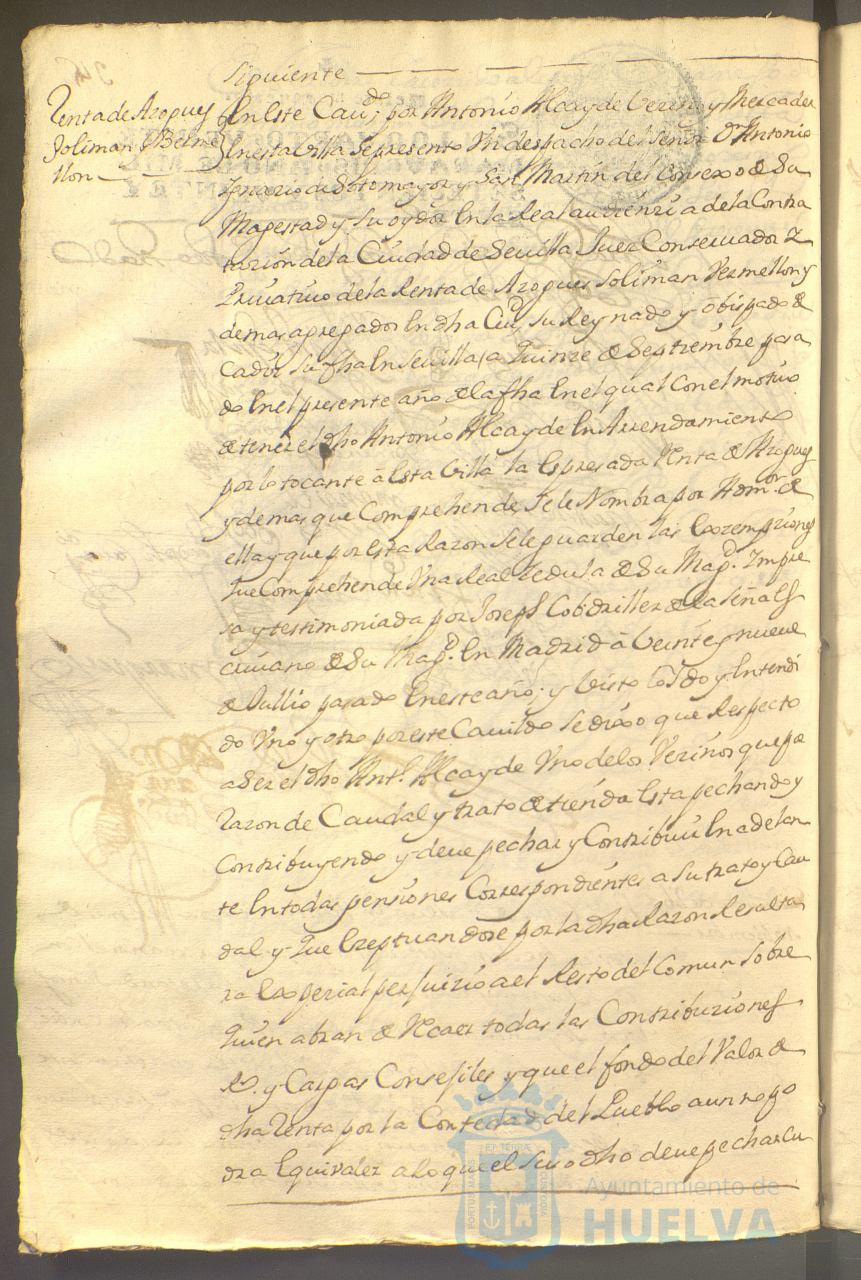 Siguiente
Renta de Azogues
Soliman y Berme
llon
En este Cavdo; por Antonio Alcayde Vezino y Mercader
En esta Villa se presento Un despacho del Señor Dn Antonio
Ignacio de Sotomayor y San Martin del Consexo de Su
Magestad y su oydor En la Real audienzia de la Contra
tazion de la Ciudad de Sevilla Juez Conservador
Privativo de la Renta de Azogues Soliman Vermellon y
demas agregados En dha Ciud su Reynado y obispado de
Cadiz su fha En Sevilla a Quinze de Septiembre pasa
do En el presente año de la fha En el qual Con el motivo
de tener el dho Antonio Alcayde En Arrendamiento
por lo tocante a Esta Villa la Expresada Renta de Azogues
y demas que Comprehende Se le Nombra por Admor de
ella y que por Esta Razon Se le guarden las Exxempziones
que Comprehende Una Real Zedula de Su Magd. Impre
sa y testimoniada por Joseph de la Peña Es
crivano de Su Magd. En Madrid a Veinte y nueve
de Jullio pasado En este año; y Visto Leydo y Entendi
do Uno y otro por este Cavildo Se dixo que Respecto
a Ser el dho Antt. Alcayde Uno de los Vezinos que por
Razon de Caudal y trato de tienda Esta pechando y
Contribuyendo y deve pechar y Contribuir En adelan
te En todas pensiones Correspondientes a su trato y Cau
dal y que Exeptuandose por la dha Razon Resulta
ra Exx perjuizio a el Resto del Comun Sobre
Quien abran de Recaer todas las Contribuziones
Rs. y Cargas Consejiles y que el fondo del Valor de
dha Renta por la Cortedad del Pueblo aun no po
dra Equivaler a lo que el Suso dho deve pechar
Ayuntamiento de
HUELVA